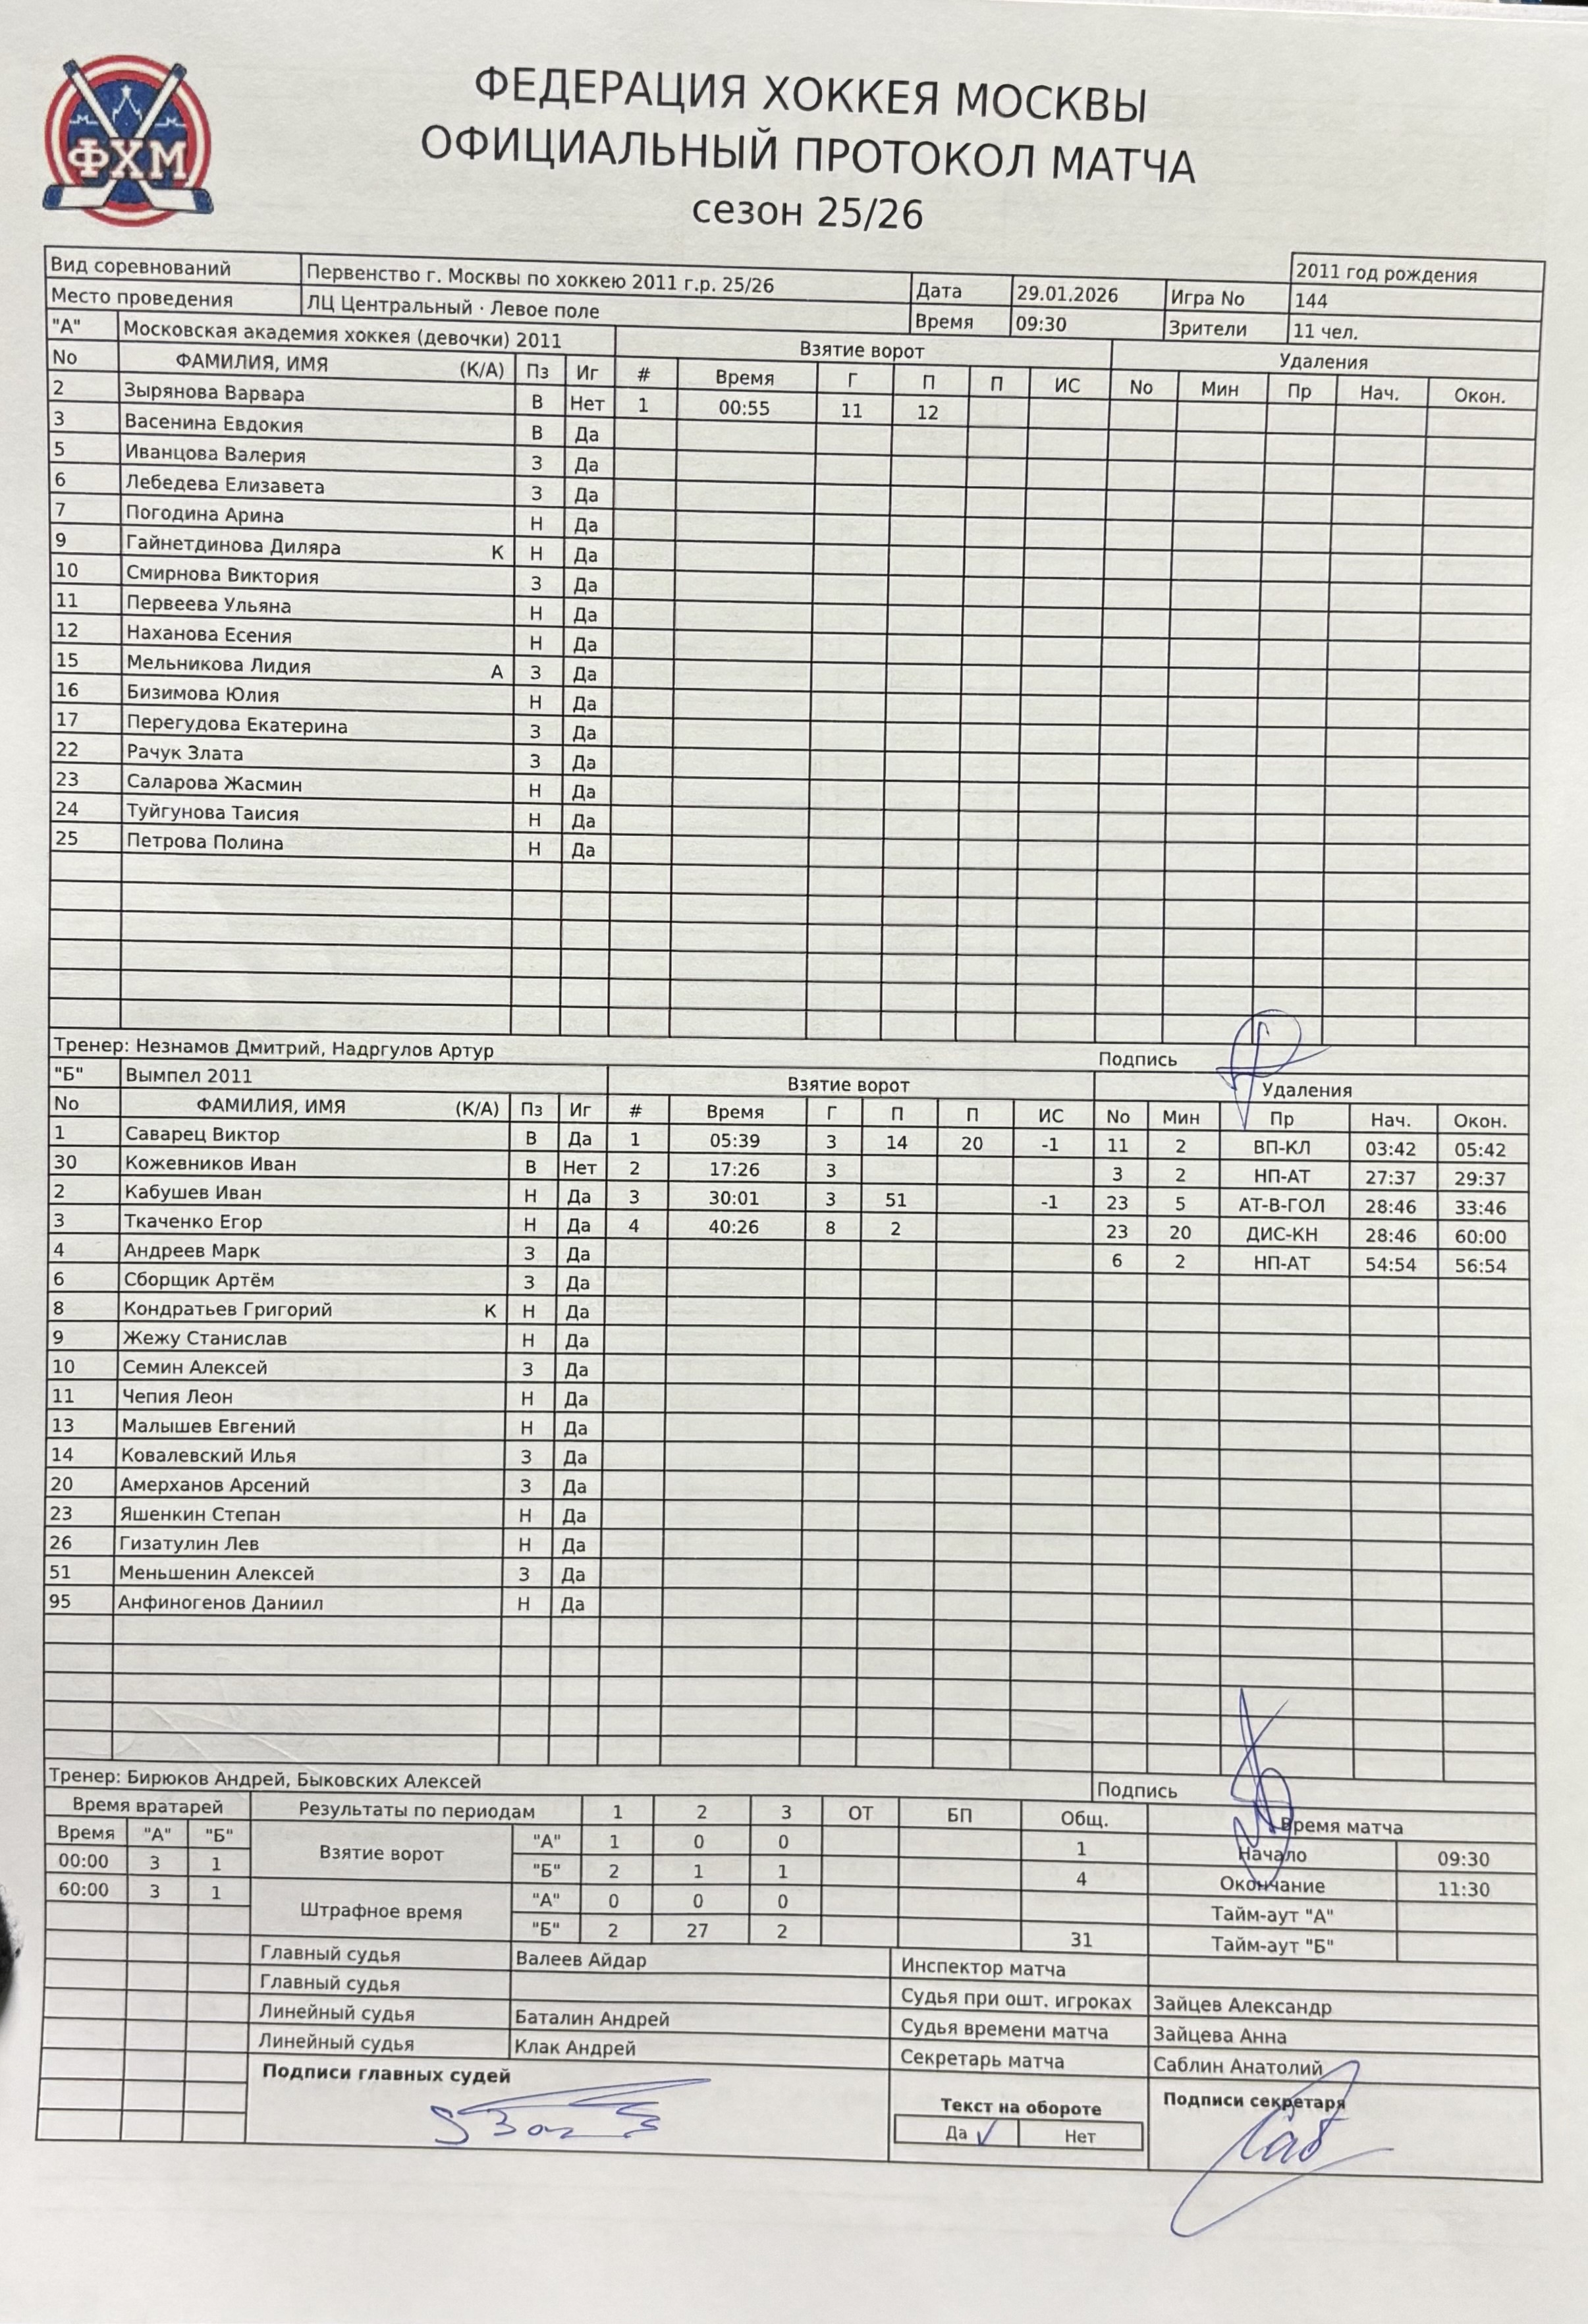 ФХМ
ФЕДЕРАЦИЯ ХОККЕЯ МОСКВЫ
ОФИЦИАЛЬНЫЙ ПРОТОКОЛ МАТЧА
сезон 25/26
2011 год рождения
Вид соревнований Первенство г. Москвы по хоккею 2011 г.р. 25/26 Дата 29.01.2026 Игра No 144
Место проведения ЛЦ Центральный · Левое поле Время 09:30 Зрители 11 чел.
"А" Московская академия хоккея (девочки) 2011 Взятие ворот Удаления
No ФАМИЛИЯ, ИМЯ (К/А) Пз Иг # Время Г П П ИС No Мин Пр Нач. Окон.
2 Зырянова Варвара В Нет 1 00:55 11 12
3 Васенина Евдокия В Да
5 Иванцова Валерия З Да
6 Лебедева Елизавета З Да
7 Погодина Арина Н Да
9 Гайнетдинова Диляра К Н Да
10 Смирнова Виктория З Да
11 Первеева Ульяна Н Да
12 Наханова Есения Н Да
15 Мельникова Лидия А З Да
16 Бизимова Юлия Н Да
17 Перегудова Екатерина З Да
22 Рачук Злата З Да
23 Саларова Жасмин Н Да
24 Туйгунова Таисия Н Да
25 Петрова Полина Н Да
Тренер: Незнамов Дмитрий, Надргулов Артур Подпись
"Б" Вымпел 2011 Взятие ворот Удаления
No ФАМИЛИЯ, ИМЯ (К/А) Пз Иг # Время Г П П ИС No Мин Пр Нач. Окон.
1 Саварец Виктор В Да 1 05:39 3 14 20 -1 11 2 ВП-КЛ 03:42 05:42
30 Кожевников Иван В Нет 2 17:26 3 3 2 НП-АТ 27:37 29:37
2 Кабушев Иван Н Да 3 30:01 3 51 -1 23 5 АТ-В-ГОЛ 28:46 33:46
3 Ткаченко Егор Н Да 4 40:26 8 2 23 20 ДИС-КН 28:46 60:00
4 Андреев Марк З Да 6 2 НП-АТ 54:54 56:54
6 Сборщик Артём З Да
8 Кондратьев Григорий К Н Да
9 Жежу Станислав Н Да
10 Семин Алексей З Да
11 Чепия Леон Н Да
13 Малышев Евгений Н Да
14 Ковалевский Илья З Да
20 Амерханов Арсений З Да
23 Яшенкин Степан Н Да
26 Гизатулин Лев Н Да
51 Меньшенин Алексей З Да
95 Анфиногенов Даниил Н Да
Тренер: Бирюков Андрей, Быковских Алексей Подпись
Время вратарей Результаты по периодам 1 2 3 ОТ БП Общ. Время матча
Время "А" "Б" Взятие ворот "А" 1 0 0 1 Начало 09:30
00:00 3 1 "Б" 2 1 1 4 Окончание 11:30
60:00 3 1 Штрафное время "А" 0 0 0 Тайм-аут "А"
"Б" 2 27 2 31 Тайм-аут "Б"
Главный судья Валеев Айдар Инспектор матча
Главный судья Судья при ошт. игроках Зайцев Александр
Линейный судья Баталин Андрей Судья времени матча Зайцева Анна
Линейный судья Клак Андрей Секретарь матча Саблин Анатолий
Подписи главных судей Текст на обороте Подписи секретаря
Да Нет